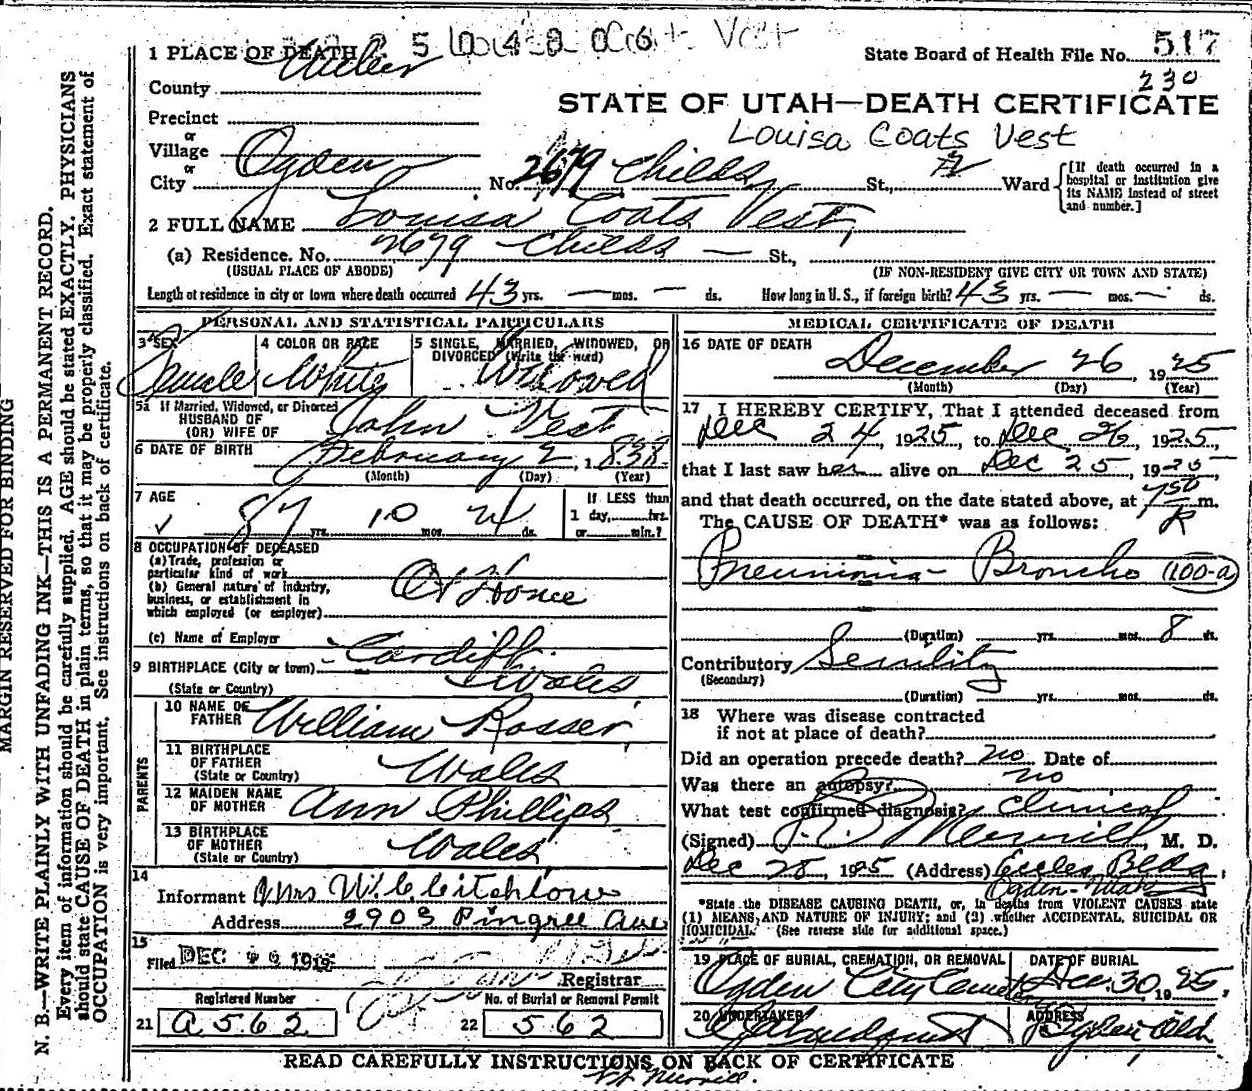 2 5 0 4 8 0 6 Louisa Coats Vest
1 PLACE OF DEATH
State Board of Health File No. 517
230
County Weber
STATE OF UTAH—DEATH CERTIFICATE
Precinct
Louisa Coats Vest
or
Village
or
City Ogden No. 2679 Childs St., Ward
[If death occurred in a hospital or institution give its NAME instead of street and number.]
2 FULL NAME Louisa Coats Vest
(a) Residence. No. 2679 Childs — St.,
(USUAL PLACE OF ABODE) (IF NON-RESIDENT GIVE CITY OR TOWN AND STATE)
Length of residence in city or town where death occurred 43 yrs. — mos. — ds. How long in U. S., if foreign birth? 43 yrs. — mos. — ds.
PERSONAL AND STATISTICAL PARTICULARS
3 SEX Female
4 COLOR OR RACE White
5 SINGLE, MARRIED, WIDOWED, OR DIVORCED (Write the word) Widowed
5a If Married, Widowed, or Divorced
HUSBAND OF
(OR) WIFE OF John Vest
6 DATE OF BIRTH February 2, 1838
(Month) (Day) (Year)
7 AGE 87 yrs. 10 mos. 24 ds.
If LESS than
1 day, hrs.
or min.?
8 OCCUPATION OF DECEASED
(a) Trade, profession or
particular kind of work
(b) General nature of industry,
business, or establishment in
which employed (or employer) At Home
(c) Name of Employer
9 BIRTHPLACE (City or town) Cardiff
(State or Country) Wales
PARENTS
10 NAME OF
FATHER William Rosser
11 BIRTHPLACE
OF FATHER
(State or Country) Wales
12 MAIDEN NAME
OF MOTHER Ann Phillips
13 BIRTHPLACE
OF MOTHER
(State or Country) Wales
14
Informant Mrs W. C. Critchlow
Address 2903 Pingree Ave
15
Filed DEC
Registrar
Registered Number No. of Burial or Removal Permit
21 A 562 22 562
MEDICAL CERTIFICATE OF DEATH
16 DATE OF DEATH
December 26, 1925
(Month) (Day) (Year)
17 I HEREBY CERTIFY, That I attended deceased from
Dec 24, 1925, to Dec 26, 1925,
that I last saw her alive on Dec 25, 1925
and that death occurred, on the date stated above, at 7 50 m.
The CAUSE OF DEATH* was as follows:
Pneumonia - Broncho (100-a)
(Duration) yrs. mos. 8 ds.
Contributory Senility
(Secondary)
(Duration) yrs. mos. ds.
18 Where was disease contracted
if not at place of death?
Did an operation precede death? no Date of
Was there an autopsy? no
What test confirmed diagnosis? Clinical
(Signed) Merrill, M. D.
Dec 28 1925 (Address) Eccles Bldg,
Ogden-Utah
*State the DISEASE CAUSING DEATH, or, in deaths from VIOLENT CAUSES state
(1) MEANS AND NATURE OF INJURY; and (2) whether ACCIDENTAL, SUICIDAL OR
HOMICIDAL. (See reverse side for additional space.)
19 PLACE OF BURIAL, CREMATION, OR REMOVAL DATE OF BURIAL
Ogden City Cemetery Dec. 30, 1925.
20 UNDERTAKER ADDRESS
Ogden Utah
READ CAREFULLY INSTRUCTIONS ON BACK OF CERTIFICATE
Merrill.
MARGIN RESERVED FOR BINDING
N. B.—WRITE PLAINLY WITH UNFADING INK—THIS IS A PERMANENT RECORD.
Every item of information should be carefully supplied. AGE should be stated EXACTLY. PHYSICIANS
should state CAUSE OF DEATH in plain terms, so that it may be properly classified. Exact statement of
OCCUPATION is very important. See instructions on back of certificate.